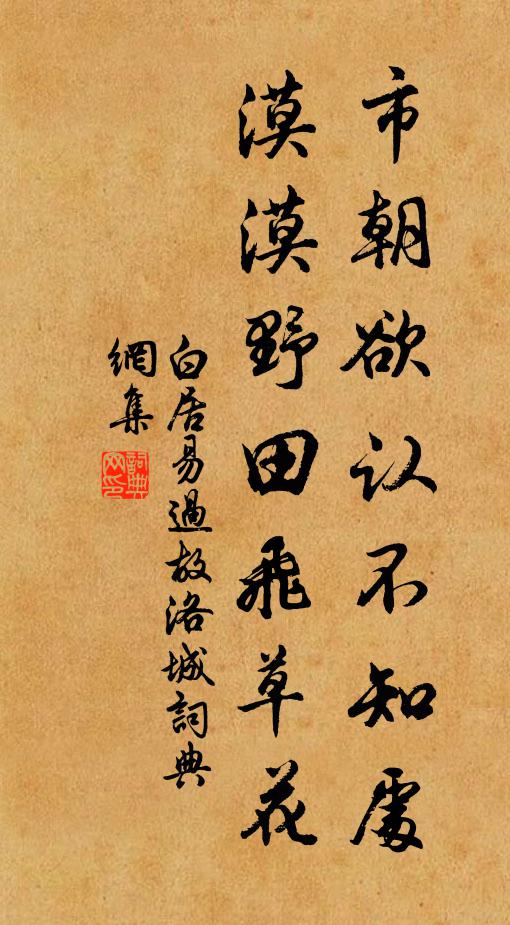 市朝欲认不知處
漠漠野田飛草花
白居易過故洛城詞典
網集
詞典網印